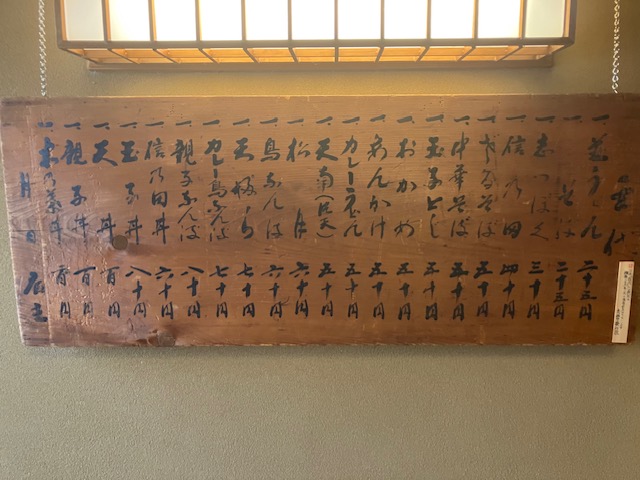 一、 うどん 二十五円
一、 そば 二十五円
一、志っぽく 三十円
一、信乃田 四十円
一、ざるそば 五十円
一、中華そば 五十円
一、玉子とじ 五十円
一、おかめ 五十円
一、あんかけ 五十円
一、カレーうどん 五十円
一、天南 五十円
一、松月 六十円
一、鳥なんば 六十円
一、天ぷら 七十円
一、カレー鳥なんば 七十円
一、親子なんば 八十円
一、信乃田丼 六十円
一、玉子丼 八十円
一、天丼 百円
一、親子丼 百円
一、 乃 丼 百円
月 日 店主